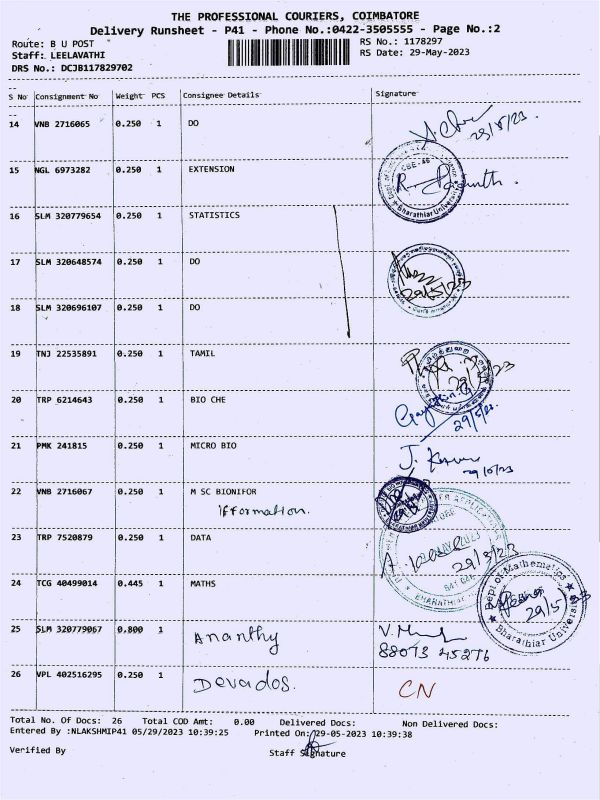 THE PROFESSIONAL COURIERS, COIMBATORE
Delivery Runsheet - P41 - Phone No.:0422-3505555 - Page No.:2
Route: B U POST RS No.: 1178297
Staff: LEELAVATHI RS Date: 29-May-2023
DRS No.: DCJB117829702
S No Consignment No Weight PCS Consignee Details Signature
14 VNB 2716065 0.250 1 DO 29/5/23
15 NGL 6973282 0.250 1 EXTENSION
CBE-46
Bharathiar University
16 SLM 320779654 0.250 1 STATISTICS
17 SLM 320648574 0.250 1 DO
29/5/23
18 SLM 320696107 0.250 1 DO
19 TNJ 22535891 0.250 1 TAMIL
29/5/23
20 TRP 6214643 0.250 1 BIO CHE
29/5/23
21 PMK 241815 0.250 1 MICRO BIO
29/5/23
22 VNB 2716067 0.250 1 M SC BIONIFOR
ifformation.
23 TRP 7520879 0.250 1 DATA
29/5/23
24 TCG 40499014 0.445 1 MATHS
Dept of Mathematics
29/5/23
Bharathiar University
25 SLM 320779067 0.800 1 Ananthy
88073 45276
26 VPL 402516295 0.250 1 Devados. CN
Total No. Of Docs: 26 Total COD Amt: 0.00 Delivered Docs: Non Delivered Docs:
Entered By :NLAKSHMIP41 05/29/2023 10:39:25 Printed On: 29-05-2023 10:39:38
Verified By Staff Signature